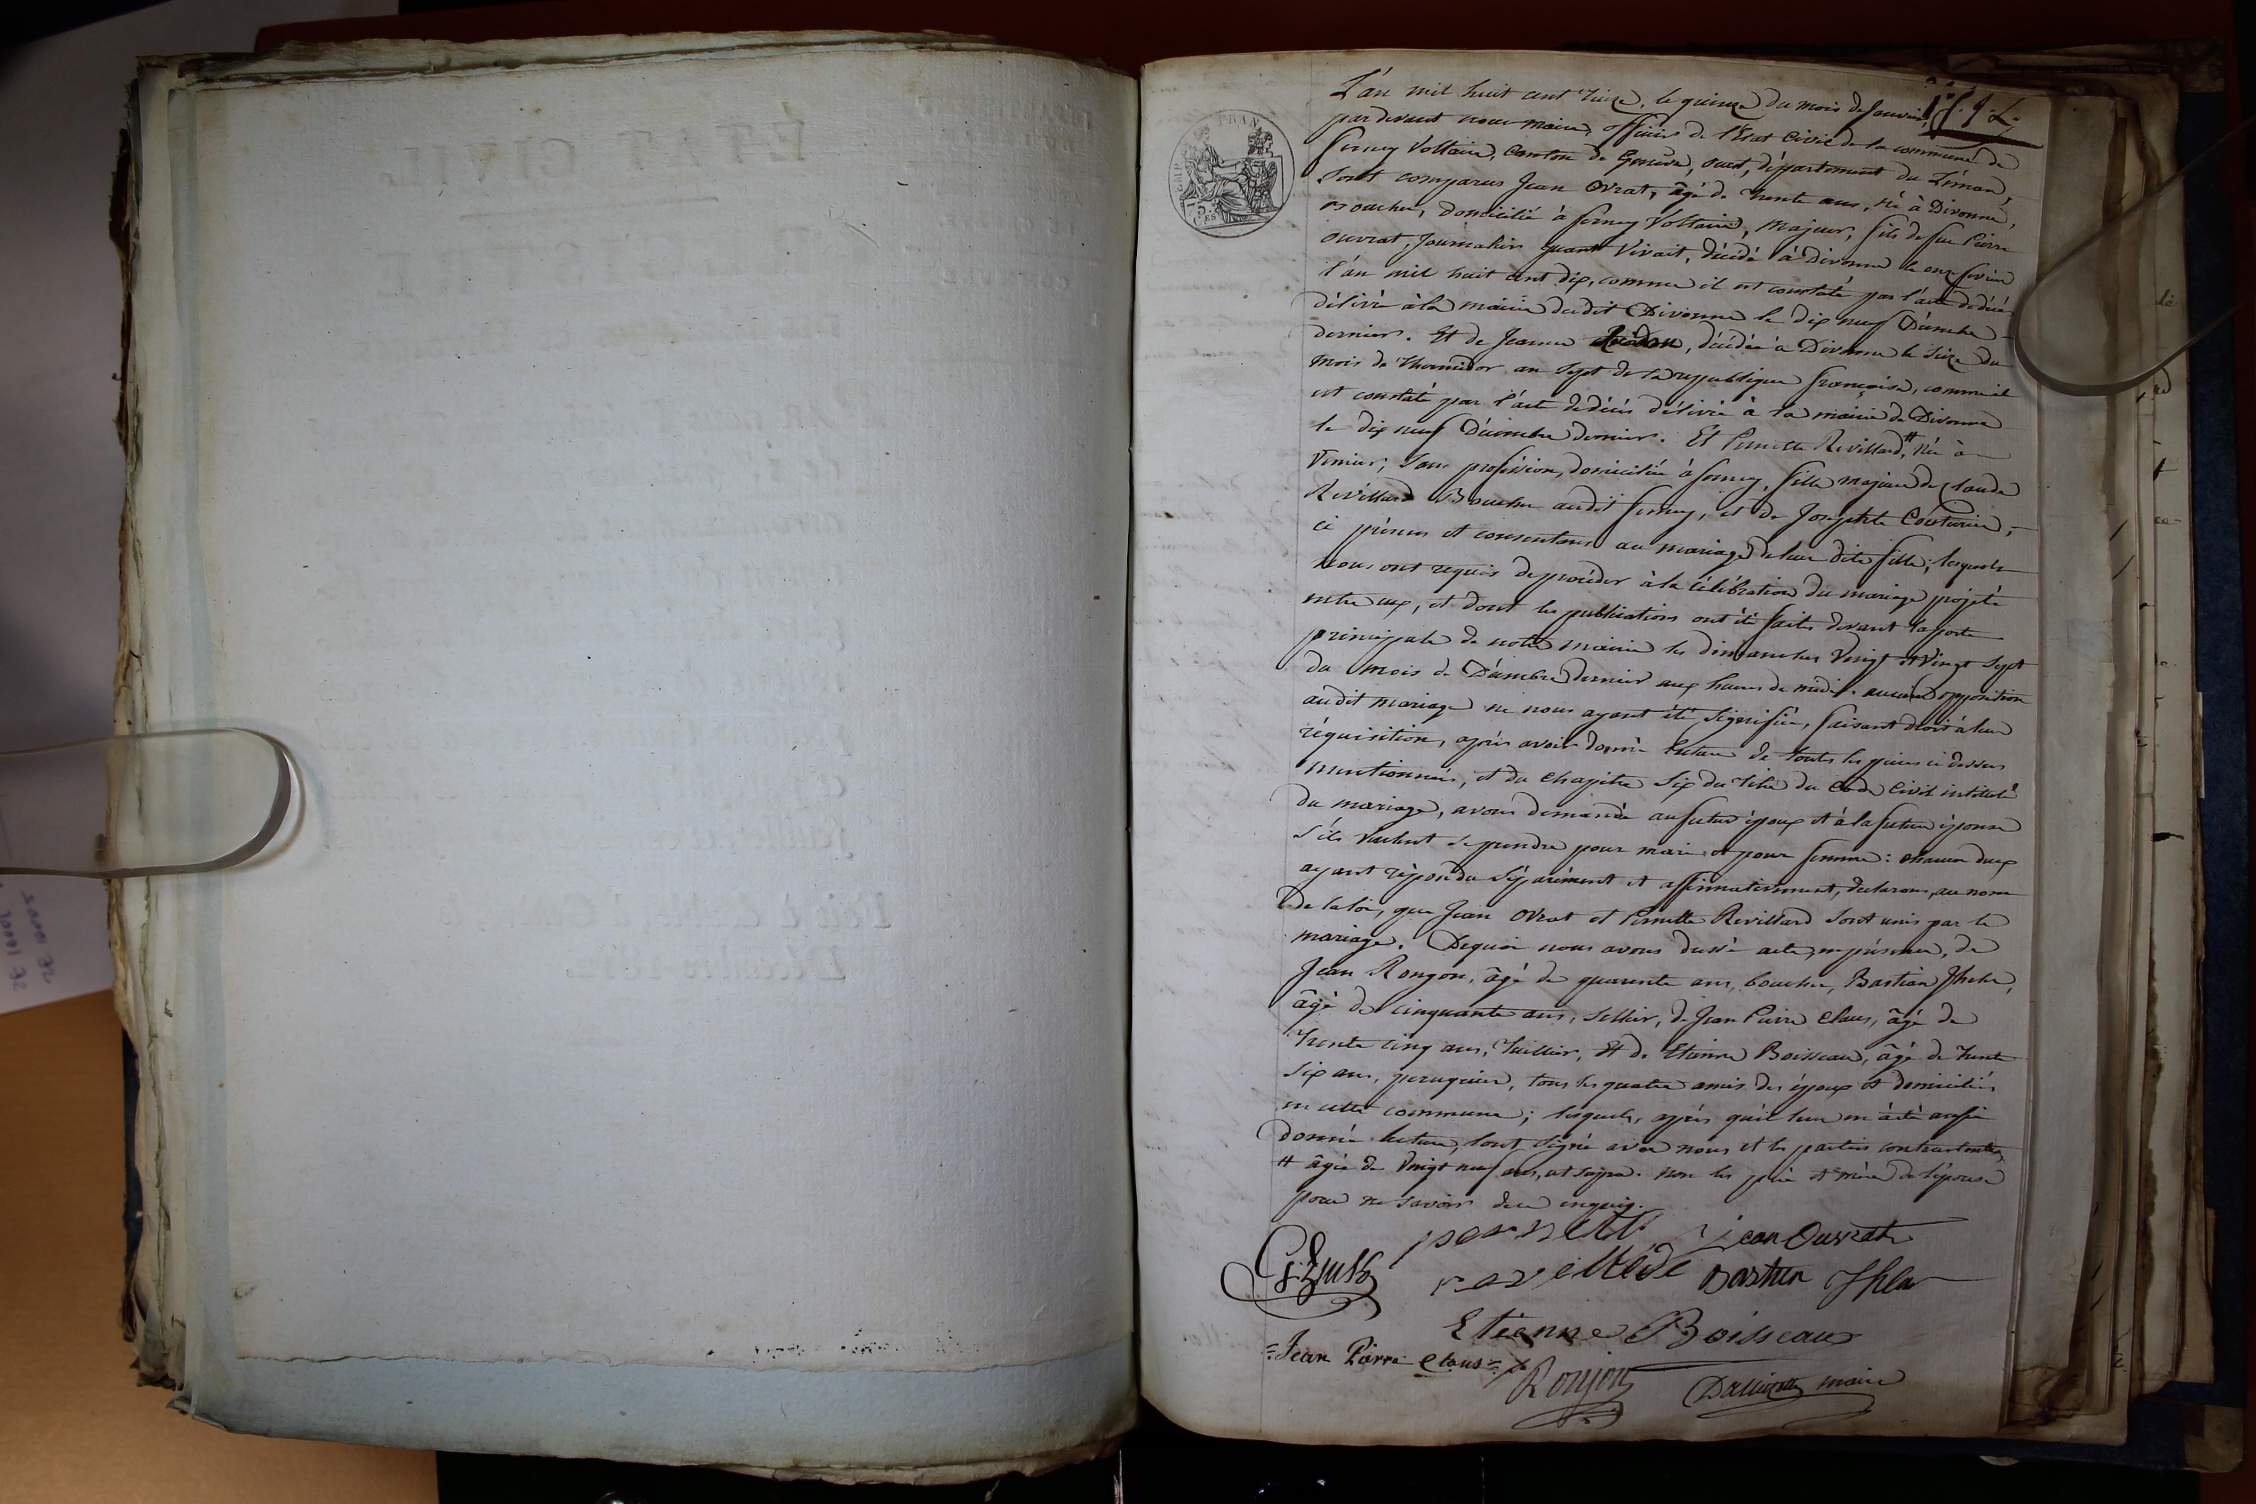 L'an mil huit cent treize, le quinze du mois de Janvier,
par devant nous maire, officier de l'Etat Civil de la commune de
ferney Voltaire, Canton de Genêve, ouest, département du Léman,
sont comparus Jean Ovrat, âgé de trente ans, né à Divonne,
Boucher, domicilié à ferney Voltaire, majeur, fils de feu Pierre
Ouvrat, Journalier quant vivait, décédé à Divonne le onze février
l'an mil huit cent dix, comme il est constaté par l'acte de décès
délivré à la mairie dudit Divonne le dix neuf Décembre
dernier. Et de Jeanne décédée à Divonne le seize du
mois de Thermidor an sept de la republique française, comme il
est constaté par l'acte de décès délivré à la mairie de Divonne
le dix neuf Décembre dernier. Et Pernette Revillard, # née à
Vernier, sans profession, domiciliée à ferney, fille majeure de Claude
Revillard Boucher audit ferney, et de Josephte Couturier,
ci présens et consentans au mariage de leur dite fille; lesquels
nous ont requis de procéder à la célébration du mariage projetté
entre eux, et dont les publications ont été faites devant la porte
principale de notre mairie les dimanches Vingt et Vingt sept
du mois de Décembre dernier aux heures de midi. aucune opposition
audit mariage ne nous ayant été signifiée, faisant droit à leur
réquisition, après avoir donné lecture de toutes les pièces ci dessus
mentionnées, et du chapitre six du titre du Code Civil intitulé
du mariage, avons demandé au futur époux et à la future épouse
s'ils veulent se prendre pour mari et pour femme: chacun d'eux
ayant répondu séparément et affirmativement, déclarons, au nom
de la loi, que Jean Ovrat et Pernette Revillard sont unis par le
mariage. Dequoi nous avons dressé acte, en présence, de
Jean Ronjon, âgé de quarante ans, boucher, Bastian Ihler,
âgé de cinquante ans, sellier, de Jean Pierre Claus, âgé de
trente cinq ans, tuillier, Et de Etienne Boisseau, âgé de trente
six ans, peruquier, tous les quatre amis des époux et domiciliés
en cette commune; lesquels, après qu'il leur en a été aussi
donné lecture, l'ont signé avec nous et les parties contractantes,
# âgée de vingt neuf ans, ut supra. non les père et mère de l'épouse
pour ne savoir de ce enquis.
pernette Jean Ouvrat
Bastian Ihler
Etienne Boisseaux
Jean Pierre Claus
Ronjon maire